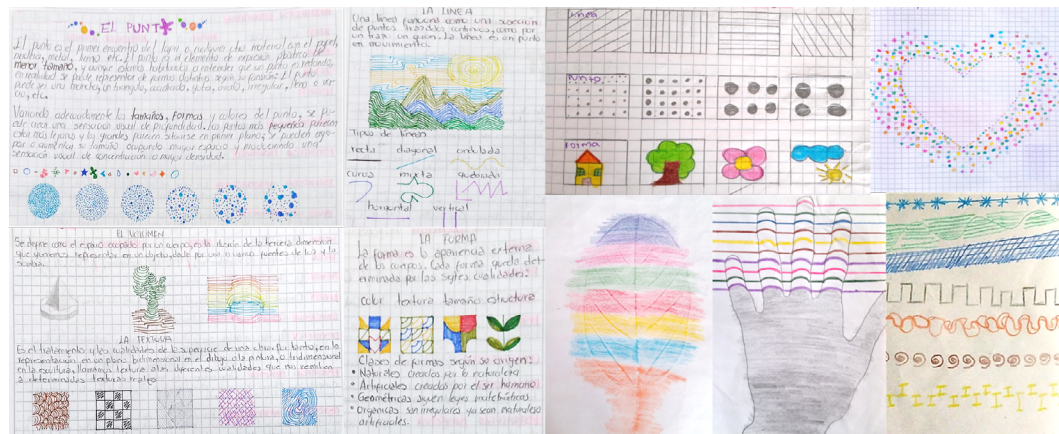 EL PUNTO
El punto es el primer encuentro del lapiz o cualquier otro material con el papel,
piedra, metal, lienzo etc. El punto es el elemento de expresión plástica de
menor tamaño, y aunque estamos habituados a entender que un punto es redondo,
en realidad se puede representar de formas distintas según su función. El punto
puede ser una mancha, un triangulo, cuadrado, gota, ovalo, irregular, lleno o va-
cio, etc.
Variando adecuadamente los tamaños, formas y colores del punto, se pu-
ede crear una sensación visual de profundidad. Los puntos más pequeños parecen
estar más lejanos y los grandes parecen situarse en primer plano, se pueden agru-
par o aumentar su tamaño ocupando mayor espacio y produciendo una
sensación visual de concentración o mayor densidad.
LA LINEA
Una línea funciona como una sucesión
de puntos trazados continuos, como por
un trazo un guión. La línea es un punto
en movimiento.
Tipos de lineas
recta diagonal ondulada
curva mixta quebrada
horizontal vertical
EL VOLUMEN
Se define como el espacio ocupado por un cuerpo, es la ilusión de la tercera dimension
que queremos representar en un objeto, dado por una o varias fuentes de luz y la
sombra.
LA TEXTURA
Es el tratamiento y las cualidades de la
representación en un plano
en la escultura, llamamos textura a las diferentes cualidades que nos remiten
a determinadas texturas reales
LA FORMA
La forma es la apariencia externa
de los cuerpos. Cada forma queda det-
erminada por las sigtes cualidades:
Color textura tamaño estructura
Clases de formas según su origen:
• Naturales creadas por la naturaleza
• Artificiales creadas por el ser humano
• Geométricas siguen leyes matemáticas.
• Orgánicas son irregulares ya sean naturales o
artificiales.
linea
Punto
forma